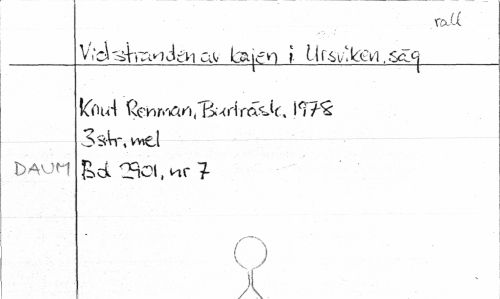 rall
Vid stranden av kajen i Ursviken, såg
Knut Renman, Burträsk, 1978
3 str, mel
DAUM Bd 2901, nr 7